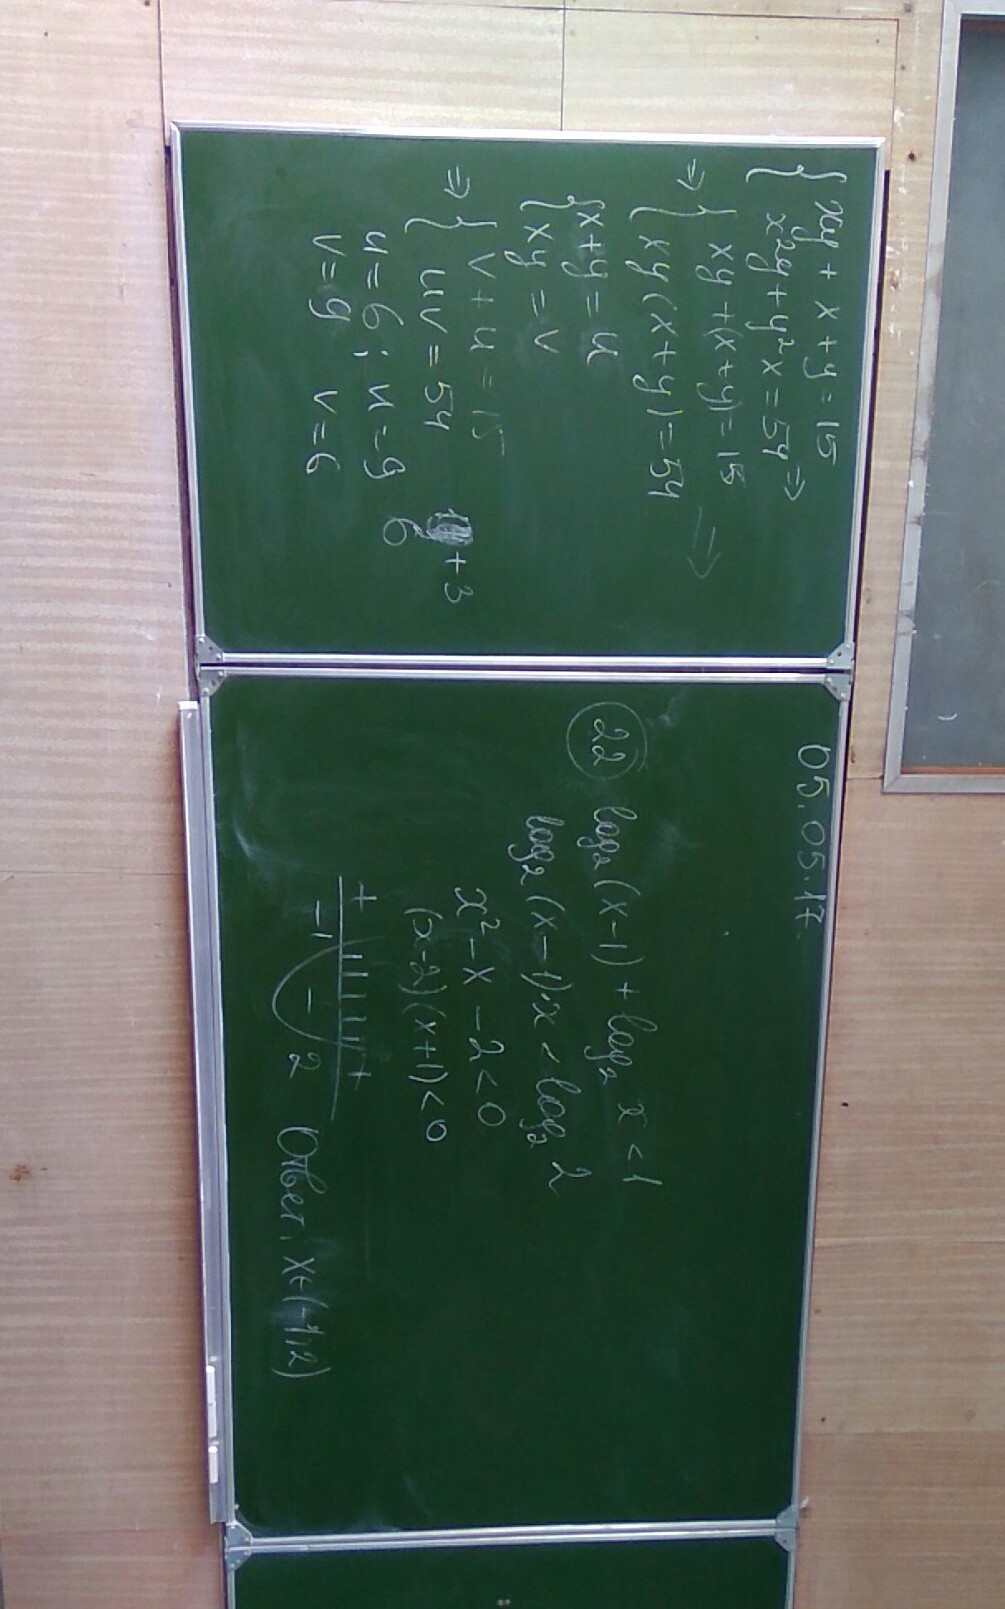 { xy + x + y = 15
x²y + y²x = 54 ⇒
⇒ { xy + (x + y) = 15
{ xy (x + y) = 54 ⇒
{ x + y = u
{ xy = v
⇒ { v + u = 15
{ uv = 54
u = 6 ; u = 9
v = 9 v = 6
+ 3
6
05.05.17.
22 log₂ (x - 1) + log₂ x < 1
log₂ (x - 1)·x < log₂ 2
x² - x - 2 < 0
(x-2)(x+1) < 0
+ - +
-1 2 Ответ: x∈(-1;2)